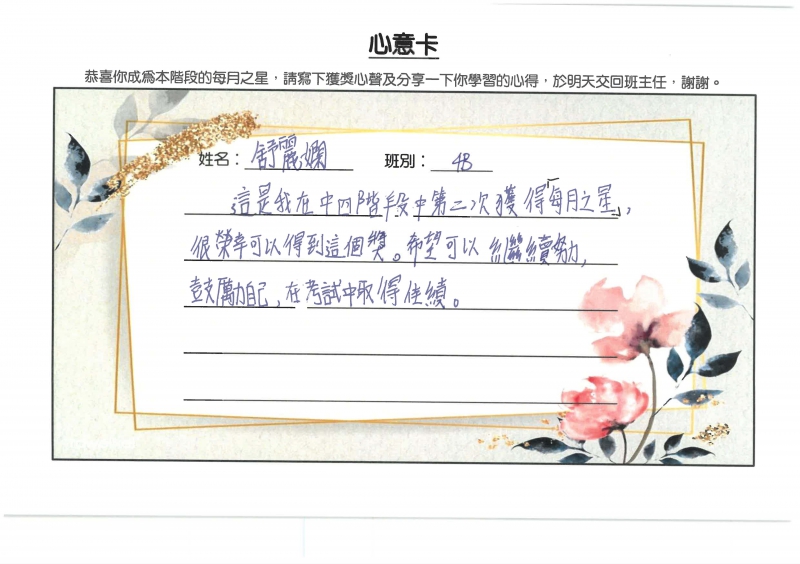 心意卡
恭喜你成為本階段的每月之星，請寫下獲獎心聲及分享一下你學習的心得，於明天交回班主任，謝謝。
姓名：舒麗嫻 班別：4B
這是我在中四階段中第二次獲得「每月之星」，
很榮幸可以得到這個獎。希望可以繼續努力，
鼓勵自己，在考試中取得佳績。